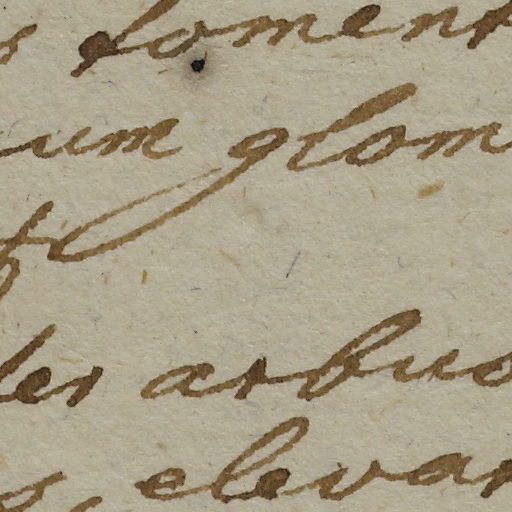 toment
um glom
les arbus
elevar